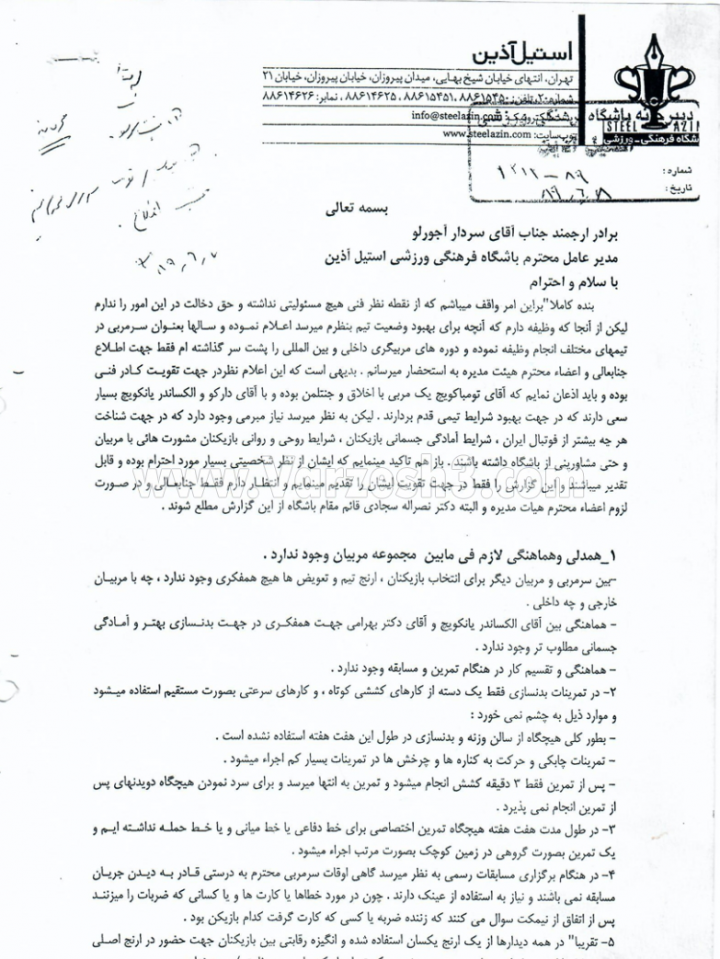 استیل آذین
تهران، انتهای خیابان شیخ بهایی، میدان پیروزان، خیابان پیروزان، خیابان ۲۱
شماره ۲۰، تلفن: ۸۸۶۱۵۴۵۰، ۸۸۶۱۵۴۵۱، ۸۸۶۱۴۶۲۵، نمابر: ۸۸۶۱۴۶۲۶
info@steelazin.com
وب سایت: www.steelazin.com
STEEL AZIN
باشگاه فرهنگی ـ ورزشی
شماره: ۸۹ – ۱۲۱۱
تاریخ: ۸۹،۶،۸
۸۹،۶،۷
بسمه تعالی
برادر ارجمند جناب آقای سردار آجورلو
مدیر عامل محترم باشگاه فرهنگی ورزشی استیل آذین
با سلام و احترام
بنده کاملا" براین امر واقف میباشم که از نقطه نظر فنی هیچ مسئولیتی نداشته و حق دخالت در این امور را ندارم
لیکن از آنجا که وظیفه دارم که آنچه برای بهبود وضعیت تیم بنظرم میرسد اعلام نموده و سالها بعنوان سرمربی در
تیمهای مختلف انجام وظیفه نموده و دوره های مربیگری داخلی و بین المللی را پشت سر گذاشته ام فقط جهت اطلاع
جنابعالی و اعضاء محترم هیئت مدیره به استحضار میرسانم . بدیهی است که این اعلام نظردر جهت تقویت کادر فنی
بوده و باید اذعان نمایم که آقای تومباکویچ یک مربی با اخلاق و جنتلمن بوده و با آقای دارکو و الکساندر یانکویچ بسیار
سعی دارند که در جهت بهبود شرایط تیمی قدم بردارند . لیکن به نظر میرسد نیاز مبرمی وجود دارد که در جهت شناخت
هر چه بیشتر از فوتبال ایران ، شرایط آمادگی جسمانی بازیکنان ، شرایط روحی و روانی بازیکنان مشورت هائی با مربیان
و حتی مشاورینی از باشگاه داشته باشند . باز هم تاکید مینمایم که ایشان از نظر شخصیتی بسیار مورد احترام بوده و قابل
تقدیر میباشند و این گزارش را فقط در جهت تقویت ایشان را تقدیم مینمایم و انتظار دارم فقط جنابعالی و در صورت
لزوم اعضاء محترم هیات مدیره و البته دکتر نصراله سجادی قائم مقام باشگاه از این گزارش مطلع شوند .
www.Varzesh3.com
۱_همدلی وهماهنگی لازم فی مابین مجموعه مربیان وجود ندارد .
-بین سرمربی و مربیان دیگر برای انتخاب بازیکنان ، ارنج تیم و تعویض ها هیچ همفکری وجود ندارد ، چه با مربیان
خارجی و چه داخلی .
- هماهنگی بین آقای الکساندر یانکویچ و آقای دکتر بهرامی جهت همفکری در جهت بدنسازی بهتر و آمادگی
جسمانی مطلوب تر وجود ندارد .
- هماهنگی و تقسیم کار در هنگام تمرین و مسابقه وجود ندارد .
۲- در تمرینات بدنسازی فقط یک دسته از کارهای کششی کوتاه ، و کارهای سرعتی بصورت مستقیم استفاده میشود
و موارد ذیل به چشم نمی خورد :
- بطور کلی هیچگاه از سالن وزنه و بدنسازی در طول این هفت هفته استفاده نشده است .
- تمرینات چابکی و حرکت به کناره ها و چرخش ها در تمرینات بسیار کم اجراء میشود .
- پس از تمرین فقط ۳ دقیقه کشش انجام میشود و تمرین به انتها میرسد و برای سرد نمودن هیچگاه دویدنهای پس
از تمرین انجام نمی پذیرد .
۳- در طول مدت هفت هفته هیچگاه تمرین اختصاصی برای خط دفاعی یا خط میانی و یا خط حمله نداشته ایم و
یک تمرین بصورت گروهی در زمین کوچک بصورت مرتب اجراء میشود .
۴- در هنگام برگزاری مسابقات رسمی به نظر میرسد گاهی اوقات سرمربی محترم به درستی قادر به دیدن جریان
مسابقه نمی باشند و نیاز به استفاده از عینک دارند . چون در مورد خطاها یا کارت ها و یا کسانی که ضربات را میزتند
پس از اتفاق از نیمکت سوال می کنند که زننده ضربه یا کسی که کارت گرفت کدام بازیکن بود .
۵- تقریبا" در همه دیدارها از یک ارنج یکسان استفاده شده و انگیزه رقابتی بین بازیکنان جهت حضور در ارنج اصلی